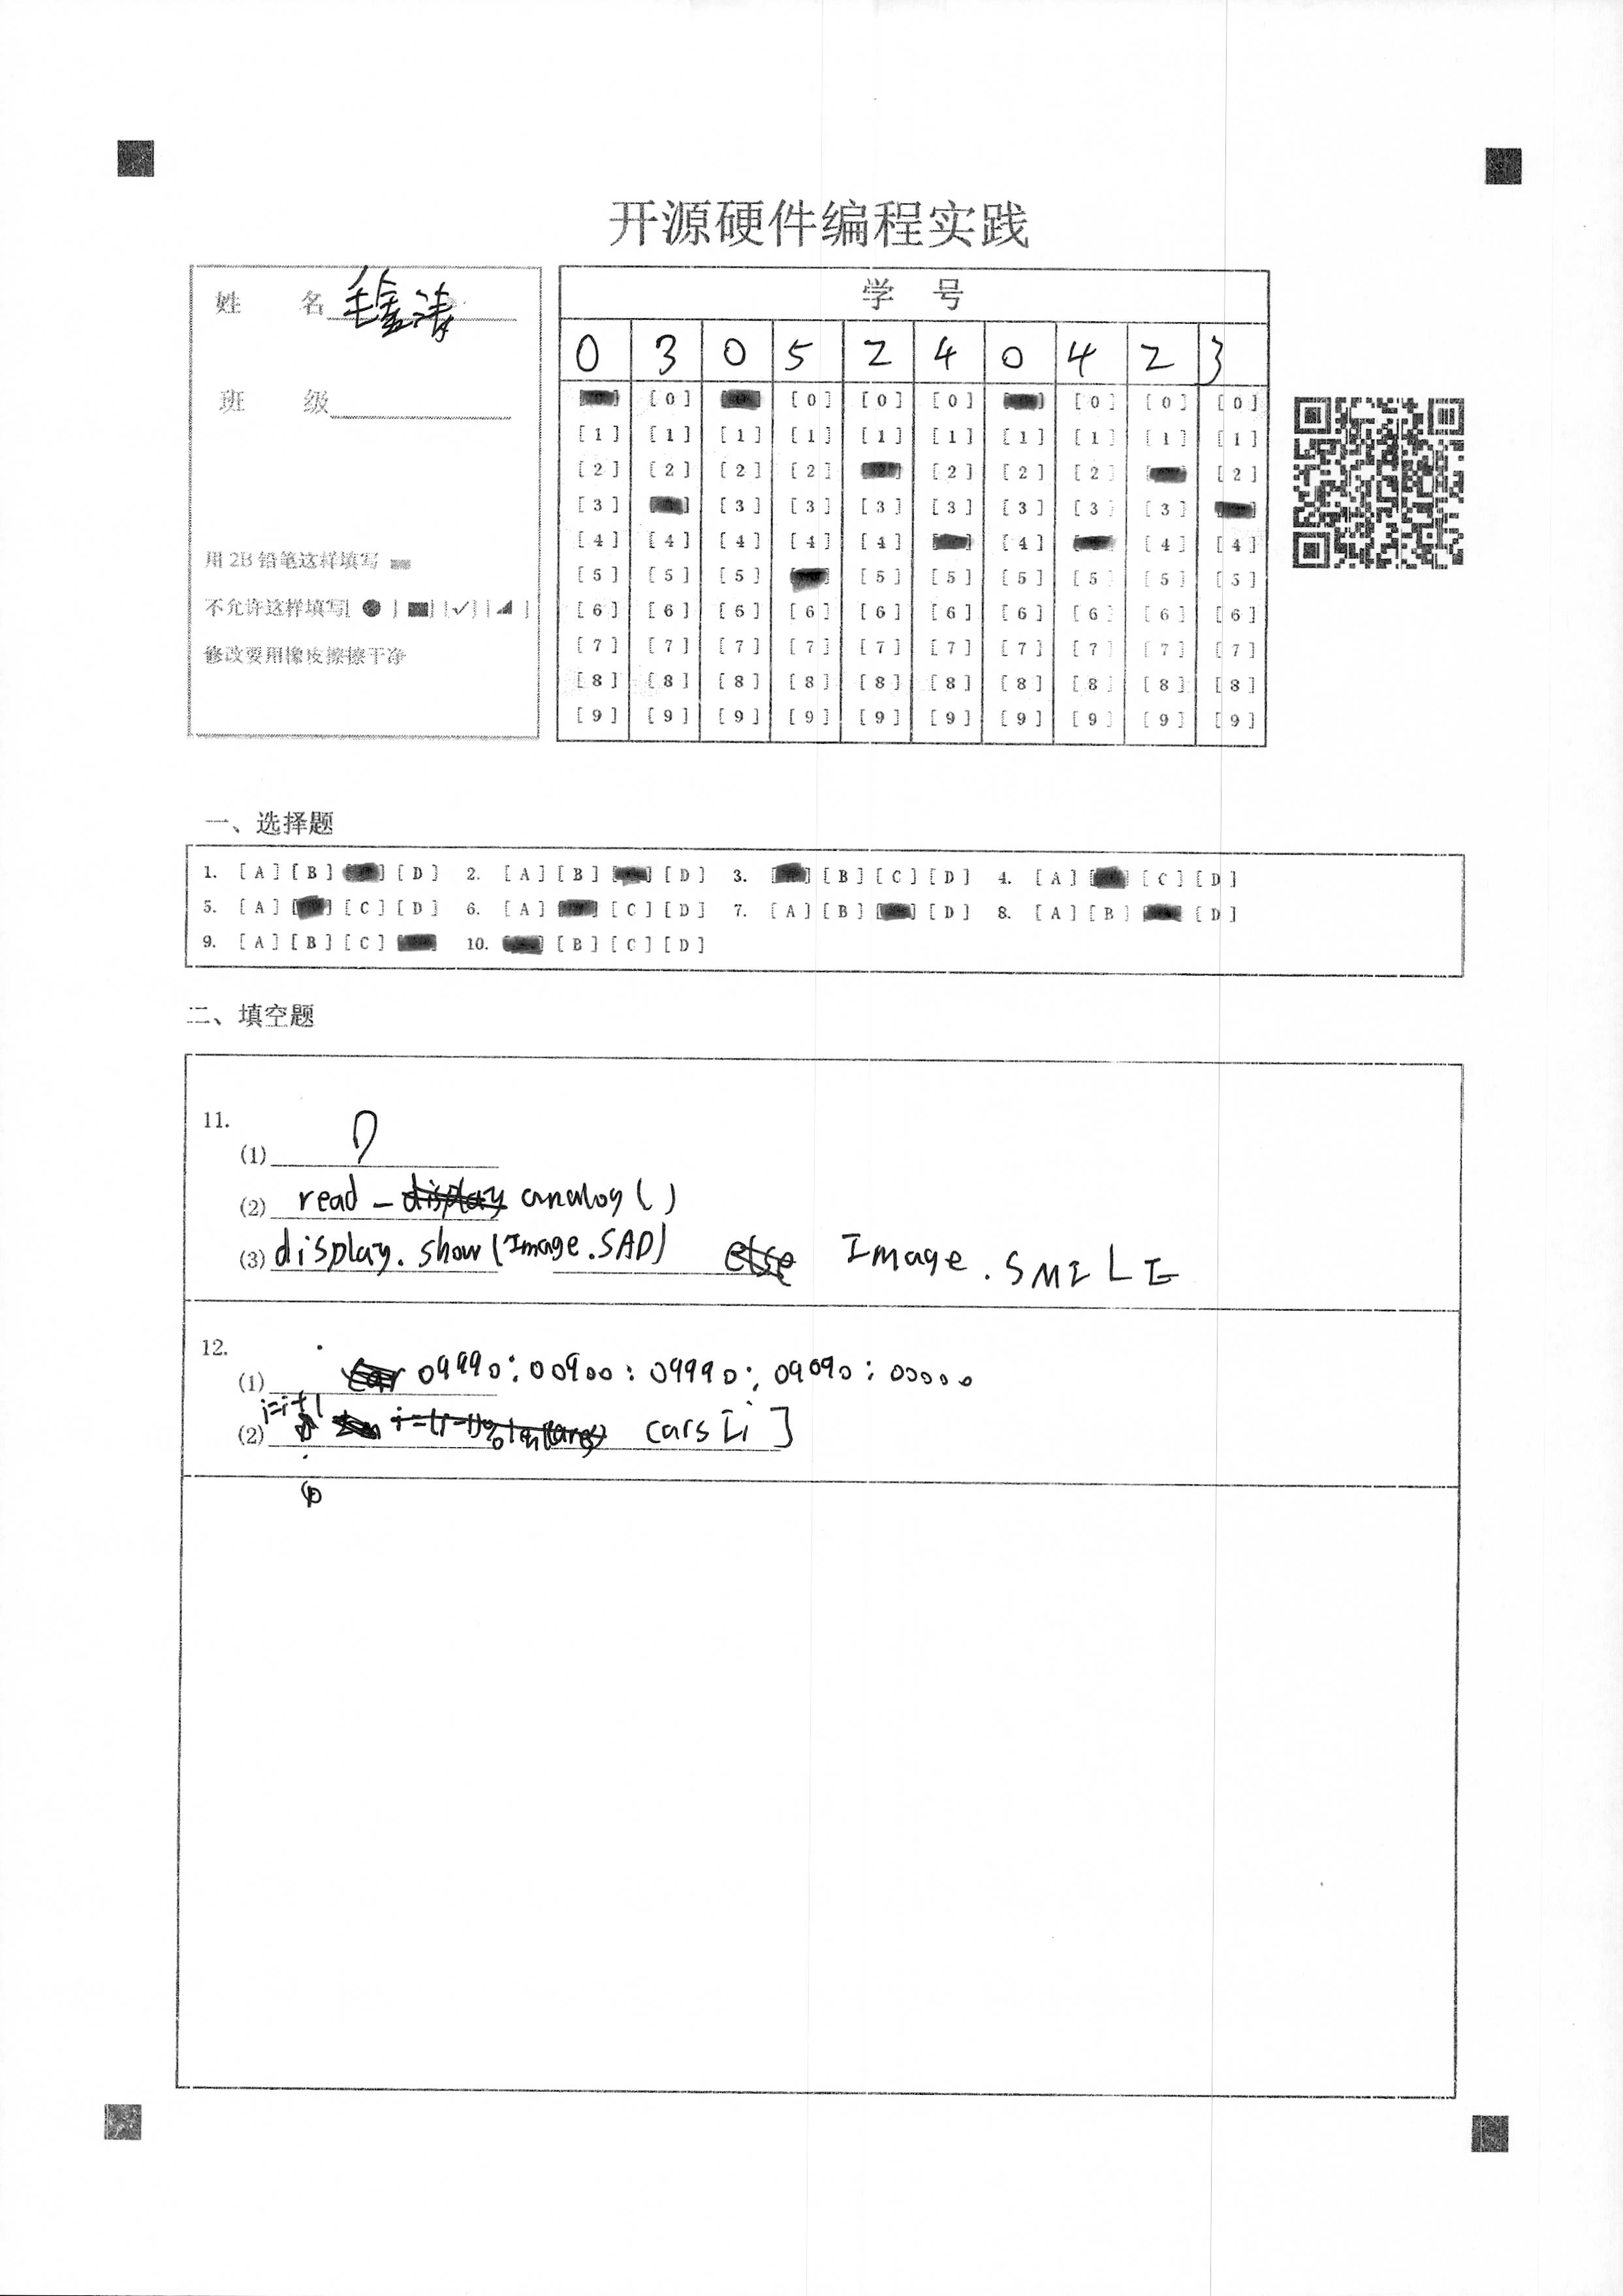 开源硬件编程实践
姓 名 毛金涛
班 级
用 2B 铅笔这样填写
不允许这样填写[ ● ] [■] [✓] [◢ ]
修改要用橡皮擦擦干净
学 号
0 3 0 5 2 4 0 4 2 3
[0] [0] [0] [0] [0] [0] [0]
[1] [1] [1] [1] [1] [1] [1] [1] [1] [1]
[2] [2] [2] [2] [2] [2] [2] [2]
[3] [3] [3] [3] [3] [3] [3] [3]
[4] [4] [4] [4] [4] [4] [4] [4]
[5] [5] [5] [5] [5] [5] [5] [5] [5]
[6] [6] [6] [6] [6] [6] [6] [6] [6] [6]
[7] [7] [7] [7] [7] [7] [7] [7] [7] [7]
[8] [8] [8] [8] [8] [8] [8] [8] [8] [8]
[9] [9] [9] [9] [9] [9] [9] [9] [9] [9]
一、选择题
1. [A] [B] [D] 2. [A] [B] [D] 3. [B] [C] [D] 4. [A] [C] [D]
5. [A] [C] [D] 6. [A] [C] [D] 7. [A] [B] [D] 8. [A] [B] [D]
9. [A] [B] [C] 10. [B] [C] [D]
二、填空题
11.
(1) 0
(2) read_display analog()
(3) display.show(Image.SAD) else Image.SMILE
12.
(1) Car 09990:00900:09990:09090:00000
i=i+1
(2) cars[i]